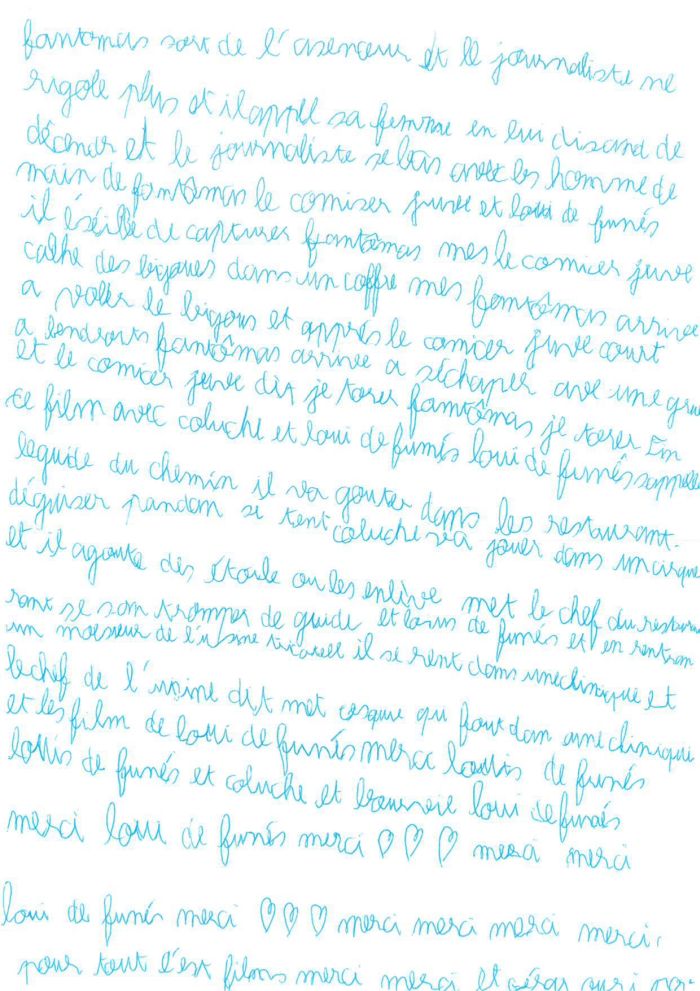 fantomas sort de l'asenceur et le journaliste ne
rigole plus et il appel sa femme en lui disand de
décendr et le journaliste se bas avec les homme de
main de fantômas le comiser juve et loui de funés
il éséille de capturer fantômas mes le comicer juve
cache des bigous dans un coffre mes fantômas arrive
a voler le bigous et apprés le comicer juve court
a bendrouts fantômas arrive a séchaper ave une grue
et le comicer juve dit je torer fantômas je torer
ce film avec coluche et loui de funés loui de funés sappelle
le guide du chemin il va gouter dans les restaurant
déguiser pandan se tent coluche va jouer dans un cirque
et il agoute des étoile ou les enlève met le chef du restau
rant se son tromper de guide et louis de funés et en rentran
un monsieur de l'usine tricatell il se rent dans une clinique et
le chef de l'usine dit met cesque qu fout dan une clinique
et les film de loui de funés merci louis de funés
louis de funés et coluche et loui de funés
merci loui de funés merci ♡ ♡ ♡ merci merci
loui de funés merci ♡ ♡ ♡ merci merci merci merci
pour tout l'est films merci merci et